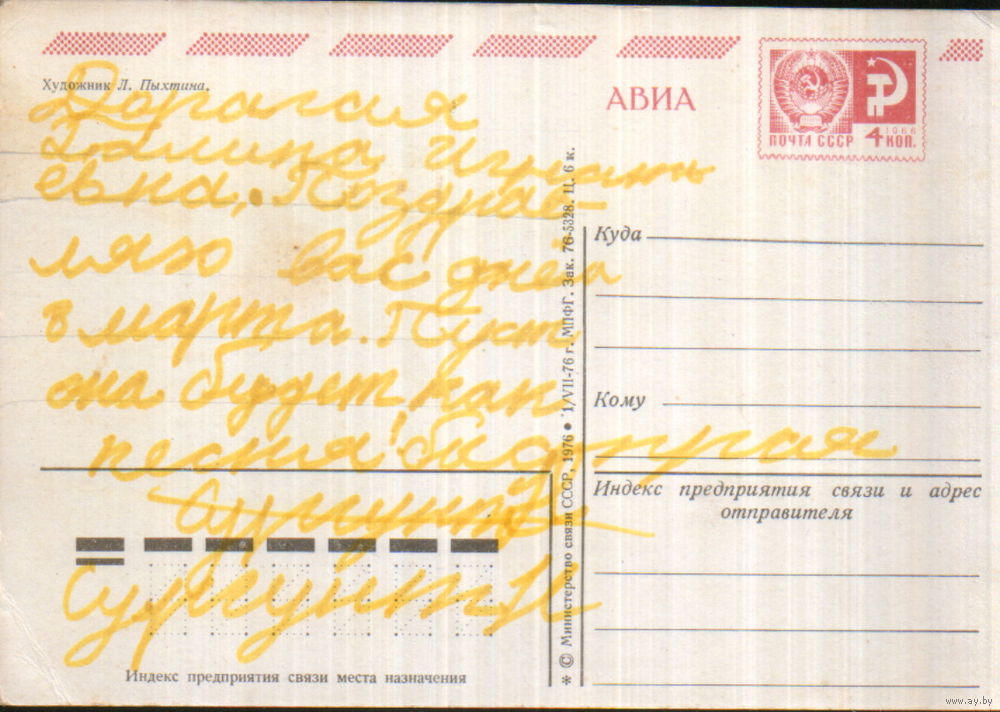 Художник Л. Пыхтина.
АВИА
1966
ПОЧТА СССР 4 КОП.
Дорагая
Галина Игнать
евна,. Поздрав-
ляю вас днём
8 марта. Пуст
она будет, как
песня! бадурая
Сургунт Н
Сургунт Н
Куда
Кому
Индекс предприятия связи и адрес
отправителя
Индекс предприятия связи места назначения
* © Министерство связи СССР, 1976 ● 1/VII-76 г. МПФГ. Зак. 76-5328. Ц. 6 к.
www.ay.by